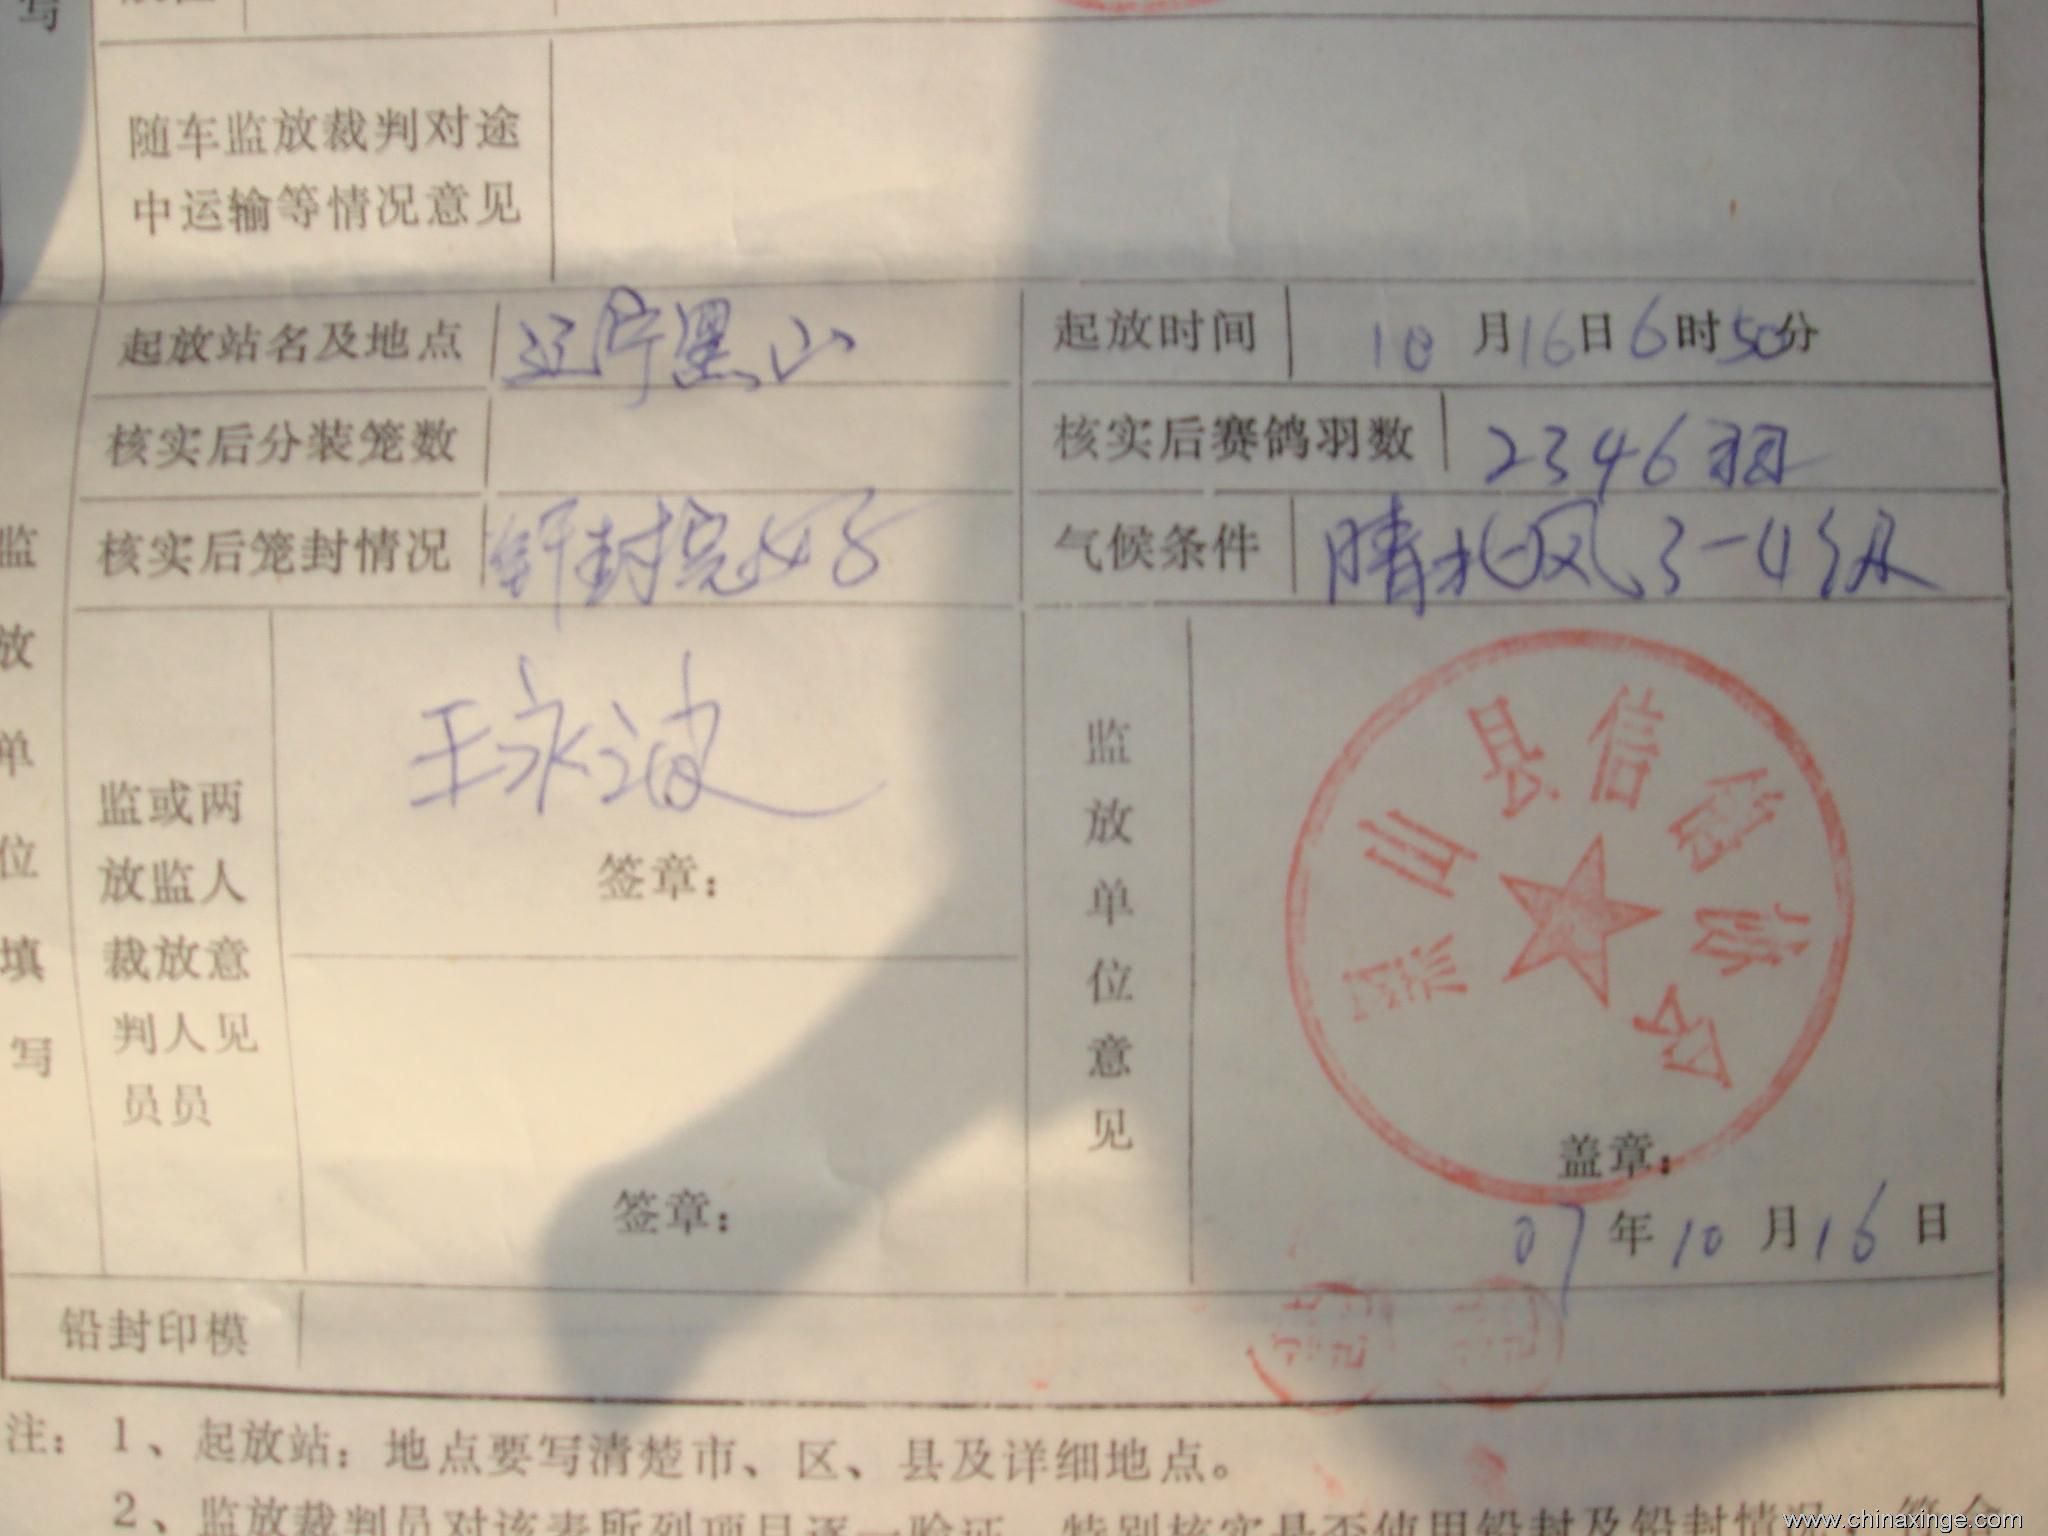 写
随车监放裁判对途
中运输等情况意见
起放站名及地点 辽宁黑山 起放时间 10月16日6时50分
核实后分装笼数 核实后赛鸽羽数 2346羽
核实后笼封情况 铅封完好 气候条件 晴北风3-4级
监放单位填写
监或两
放监人
裁放意
判人见
员员
王永波
签章：
签章：
监放单位意见
黑山县信鸽协会
盖章：
07年10月16日
铅封印模
注：1、起放站：地点要写清楚市、区、县及详细地点。
2、监放裁判员对该表所列项目逐一验证，特别核实是否使用铅封及铅封情况，签
www.chinaxinge.com